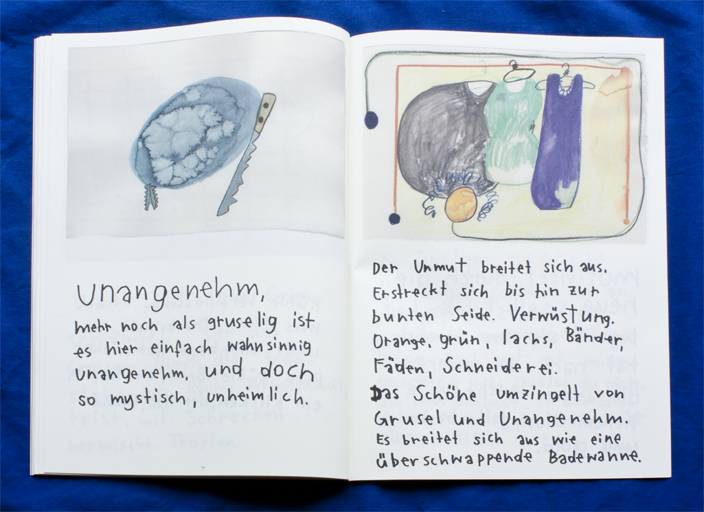 Unangenehm,
mehr noch als gruselig ist
es hier einfach wahnsinnig
unangenehm, und doch
so mystisch, unheimlich.
Der Unmut breitet sich aus.
Erstreckt sich bis hin zur
bunten Seide. Verwüstung.
Orange, grün, lachs, Bänder,
Fäden, Schneiderei.
Das Schöne umzingelt von
Grusel und Unangenehm.
Es breitet sich aus wie eine
überschwappende Badewanne.